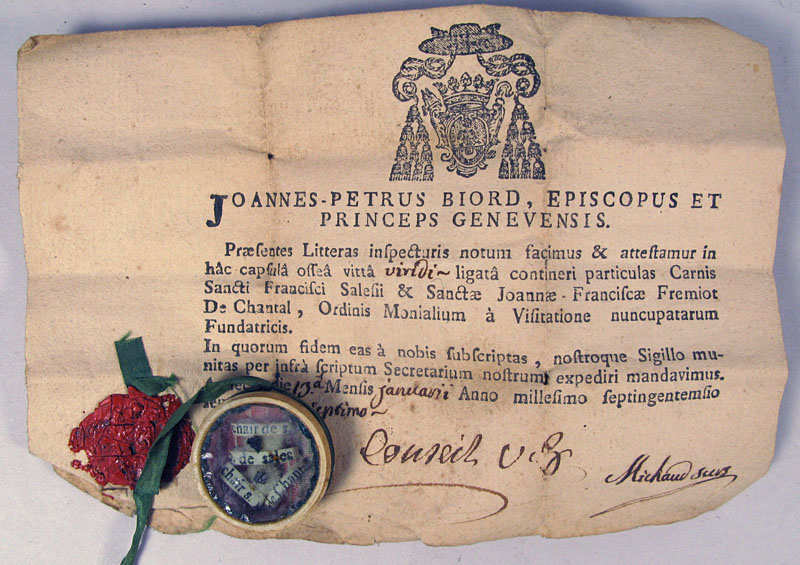 JOANNES-PETRUS BIORD, EPISCOPUS ET
PRINCEPS GENEVENSIS.
Præsentes Litteras inspecturis notum facimus & attestamur in
hâc capsulâ osseâ vittâ viridi ligatâ contineri particulas Carnis
Sancti Francisci Salesii & Sanctæ Joannæ-Franciscæ Fremiot
De Chantal, Ordinis Monialium à Visitatione nuncupatarum
Fundatricis.
In quorum fidem eas à nobis subscriptas, nostroque Sigillo mu-
nitas per infrà scriptum Secretarium nostrum expediri mandavimus.
die 13a Mensis januarii Anno millesimo septingentesimo
septimo
Conseil
Michaud
chair de s.
de sales
&
chair s.
de Chan